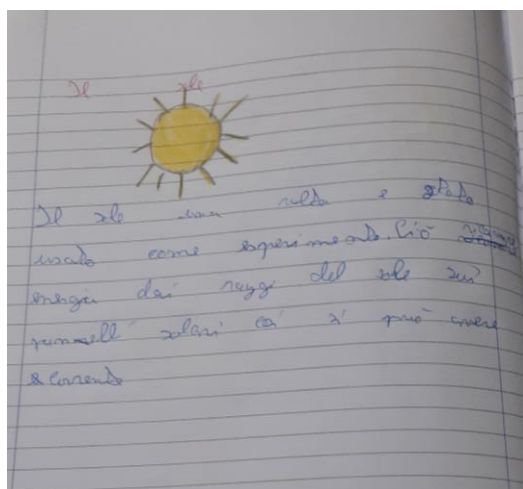 Il sole
Il sole una volta è stato
usato come esperimento. Ciò
energia dai raggi del sole sui
pannelli solari così si può avere
corrente